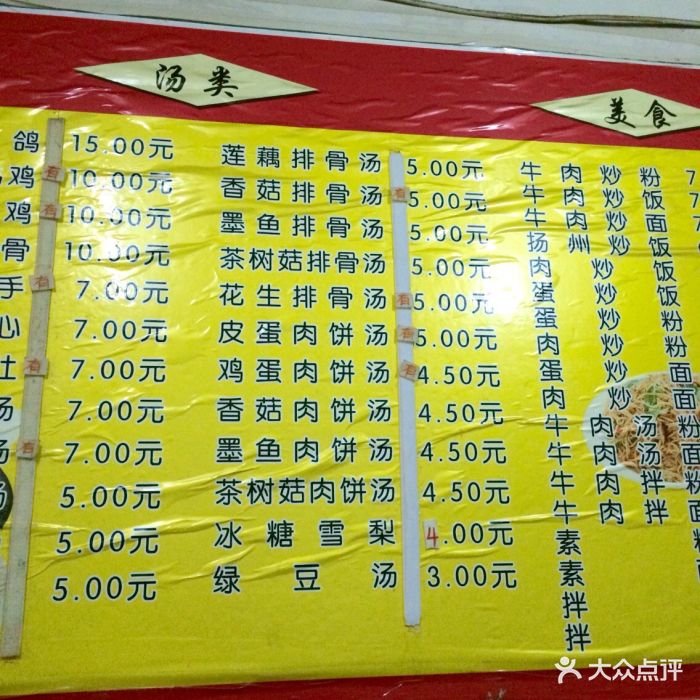 汤类
美食
鸽 15.00元 莲藕排骨汤 5.00元 牛肉炒粉 7
鸡 有 10.00元 香菇排骨汤 有 5.00元 牛肉炒饭
鸡 有 10.00元 墨鱼排骨汤 5.00元 牛肉炒面
骨 10.00元 茶树菇排骨汤 5.00元 扬州炒饭
手 有 7.00元 花生排骨汤 有 5.00元 肉炒饭
心 7.00元 皮蛋肉饼汤 有 5.00元 蛋炒饭
肚 有 7.00元 鸡蛋肉饼汤 有 4.50元 蛋炒粉
汤 7.00元 香菇肉饼汤 4.50元 肉炒粉
汤 有 7.00元 墨鱼肉饼汤 4.50元 蛋炒面
汤 5.00元 茶树菇肉饼汤 4.50元 肉炒面
5.00元 冰糖雪梨 4.00元 牛肉汤粉
5.00元 绿豆汤 3.00元 牛肉汤面
牛肉拌粉
牛肉拌面
素
素
拌
拌
大众点评